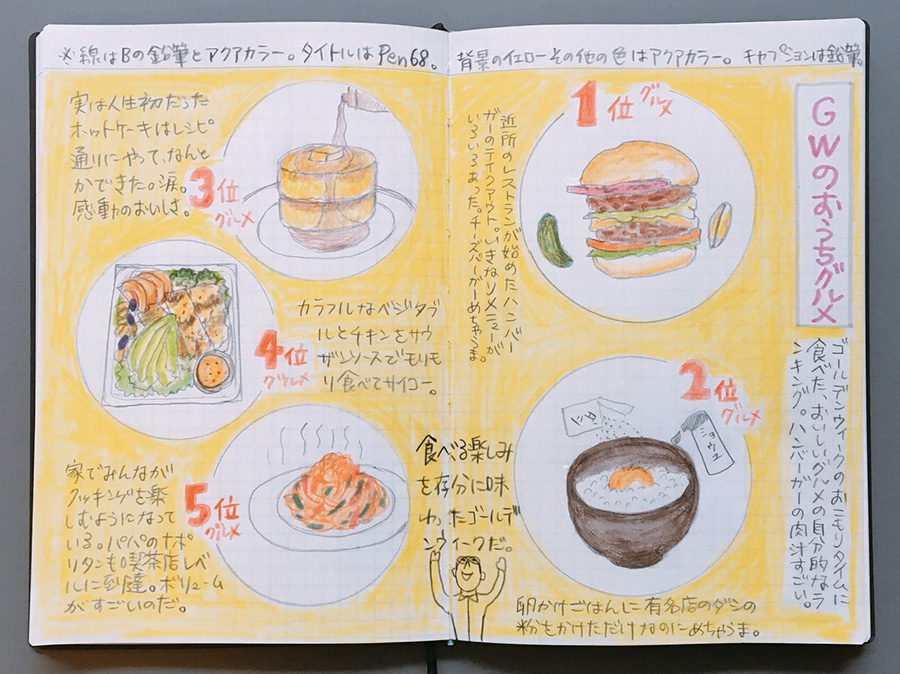 ※線はBの鉛筆とアクアカラー。タイトルはPen68。
背景のイエローその他の色はアクアカラー。キャプションは鉛筆。
GWのおうちグルメ
ゴールデンウィークのおこもりタイムに
食べた、おいしいグルメの自分的なラ
ンキング。ハンバーガーの肉汁すごい。
1位
グルメ
近所のレストランが始めたハンバー
ガーのテイクアウト。いきなりメニューが
いろいろあった。チーズバーガーめちゃうま。
2位
グルメ
ショウユ
卵かけごはんに有名店のダシの
粉をかけただけなのにめちゃうま。
実は人生初だった
ホットケーキはレシピ
通りにやって、なんと
かできた。涙。
感動のおいしさ。
3位
グルメ
カラフルなベジタブ
ルとチキンをサウ
ザンソースでモリモ
リ食べてサイコー。
4位
グルメ
家でみんなが
クッキングを楽
しむようになって
いる。パパのナポ
リタンも喫茶店レベ
ルに到達。ボリューム
がすごいのだ。
5位
グルメ
食べる楽しみ
を存分に味
わったゴールデ
ンウィークだ。